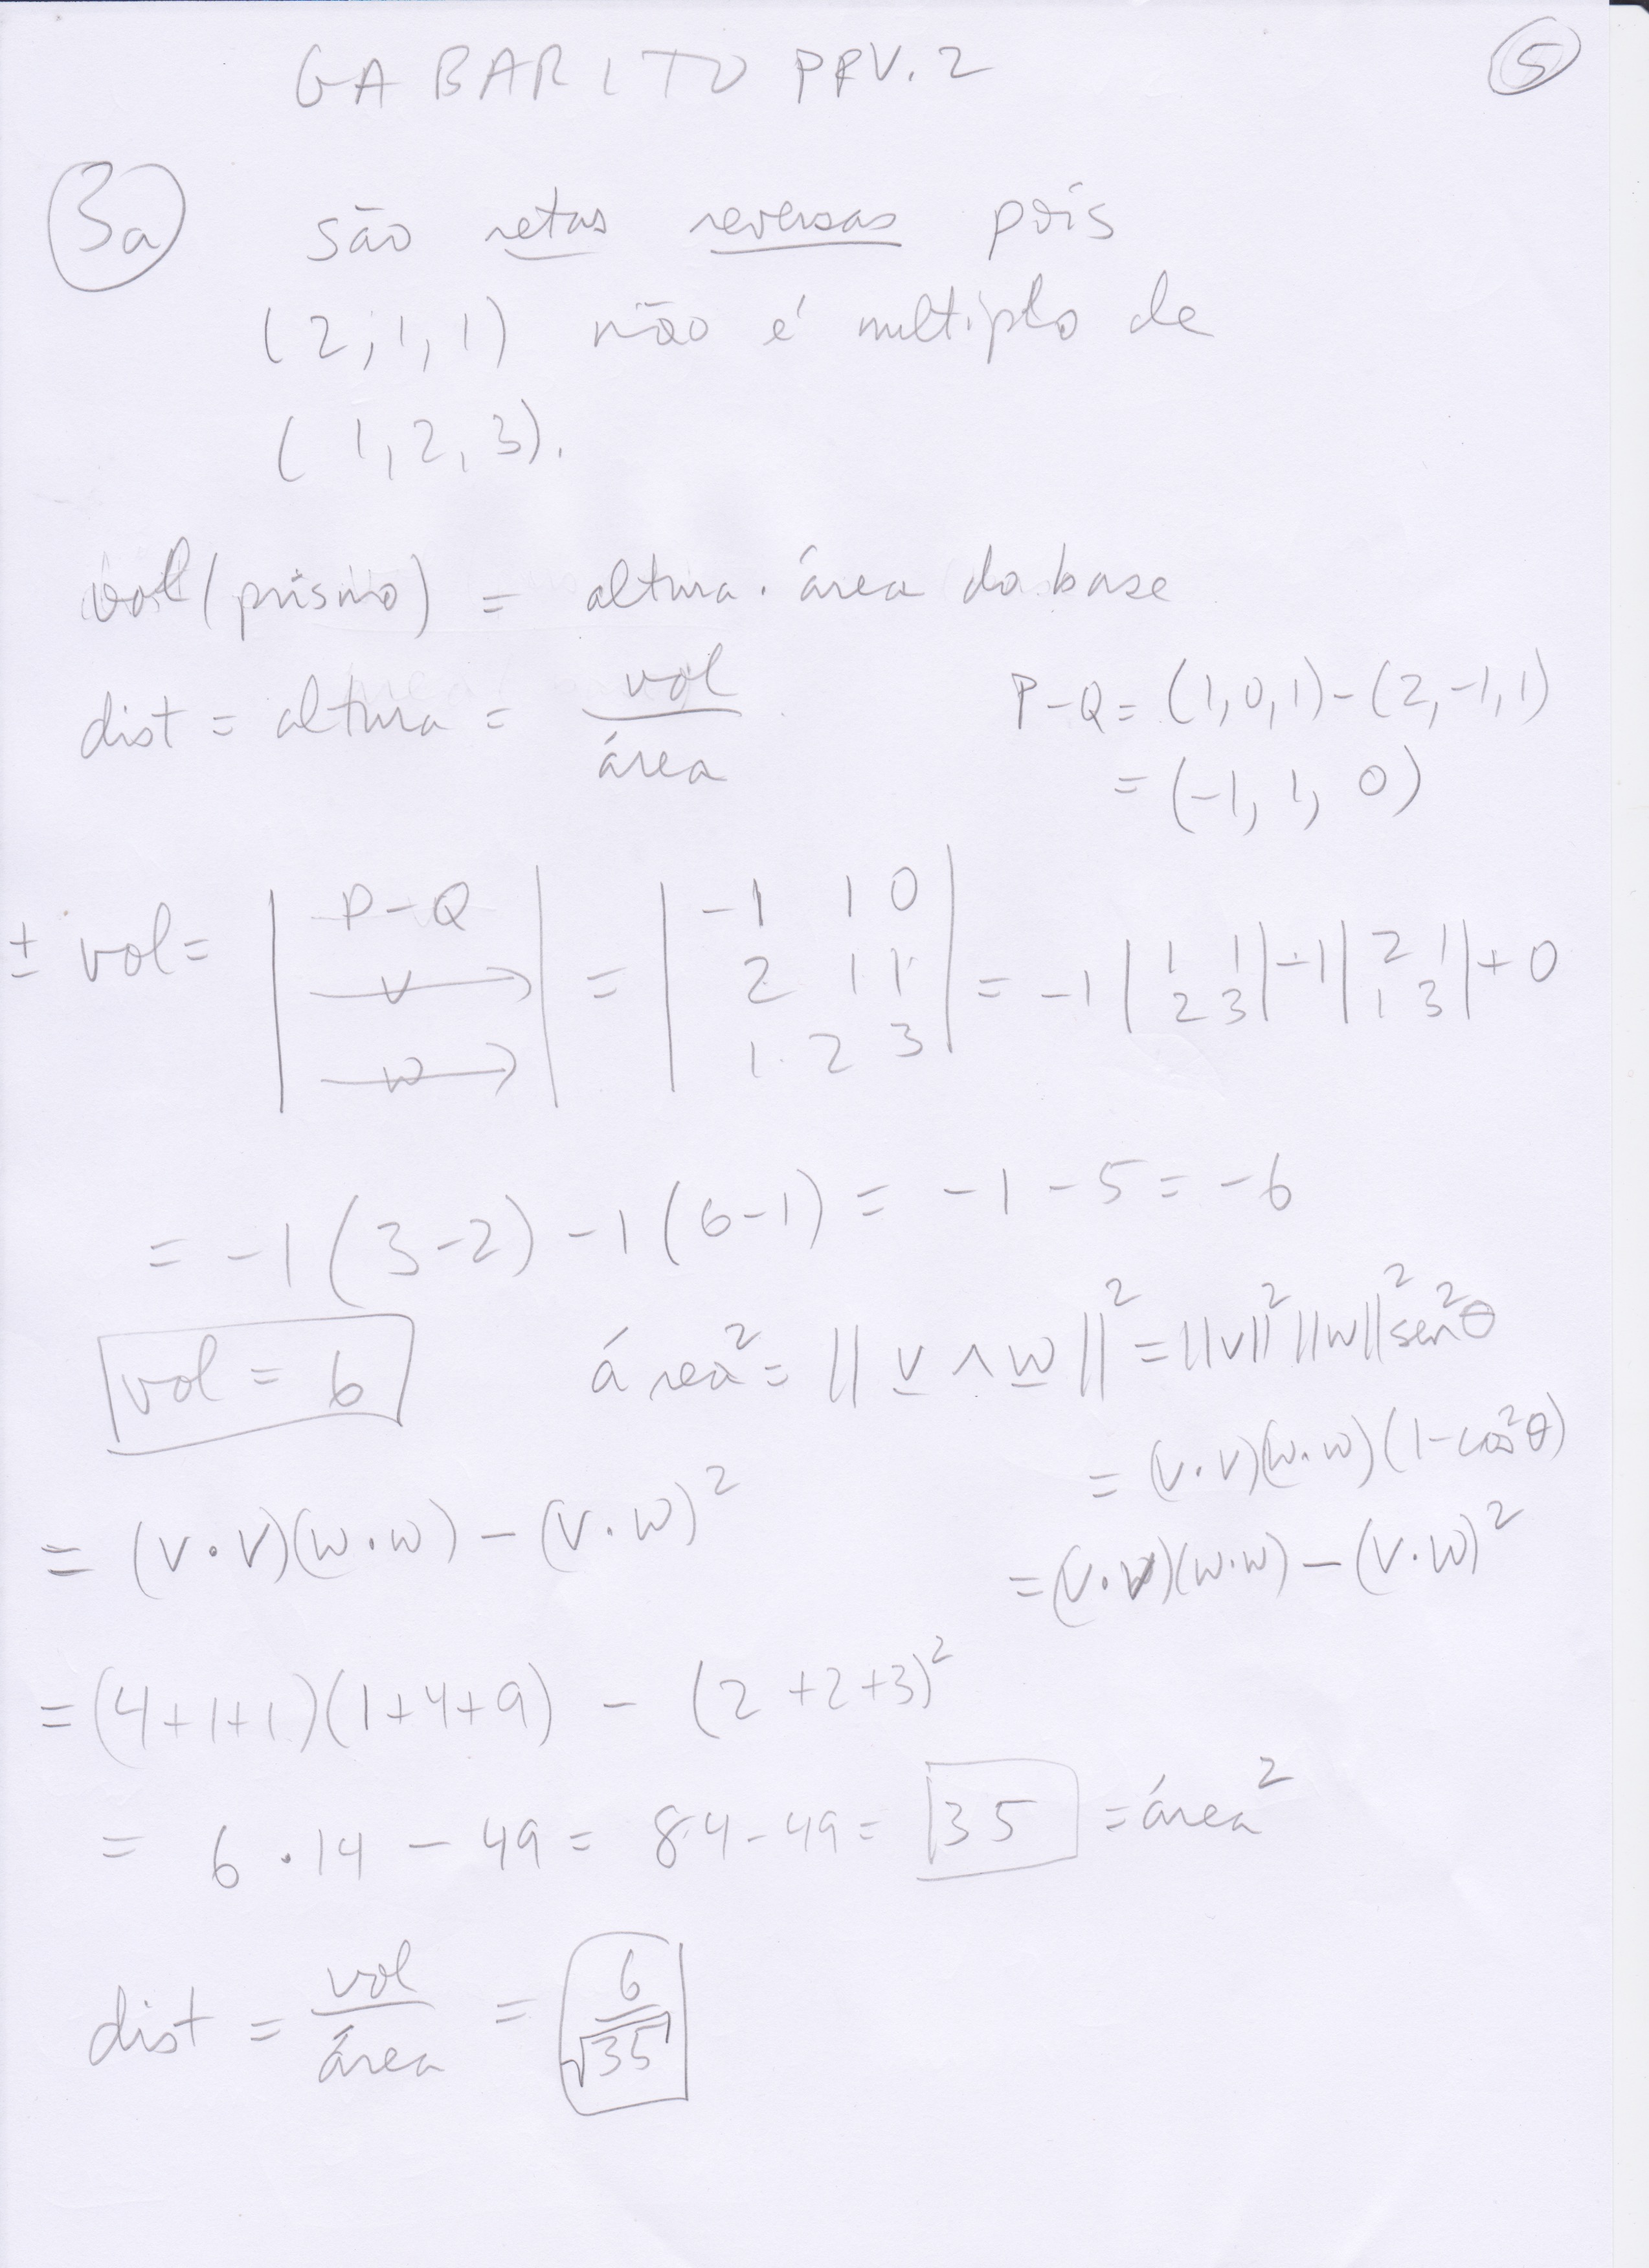 GABARITO PRV. 2
5
3a
são retas reversas pois
(2,1,1) não é multiplo de
(1,2,3).
vol(prisma) = altura . área da base
dist = altura = vol/área
P-Q = (1,0,1)-(2,-1,1)
= (-1, 1, 0)
± vol = | P-Q v w | = | -1 1 0 2 1 1 1 2 3 | = -1 | 1 1 2 3 | -1 | 2 1 1 3 | + 0
= -1(3-2) -1(6-1) = -1 -5 = -6
vol = 6
área² = || v ∧ w ||² = ||v||² ||w||² sen²θ
= (v.v)(w.w)(1-cos²θ)
= (v.v)(w.w) - (v.w)²
= (v.v)(w.w) - (v.w)²
= (4+1+1)(1+4+9) - (2+2+3)²
= 6 . 14 - 49 = 84-49 = 35 = área²
dist = vol/área = 6/√35